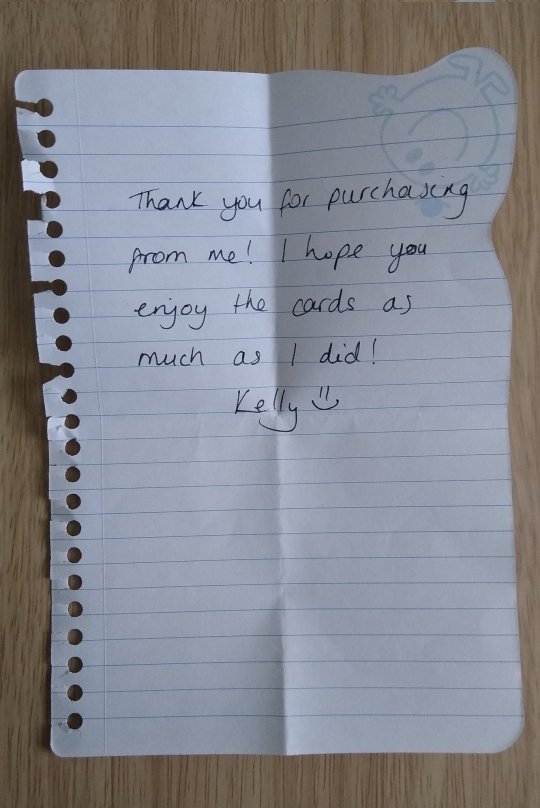 Thank you for purchasing
from me! I hope you
enjoy the cards as
much as I did!
Kelly